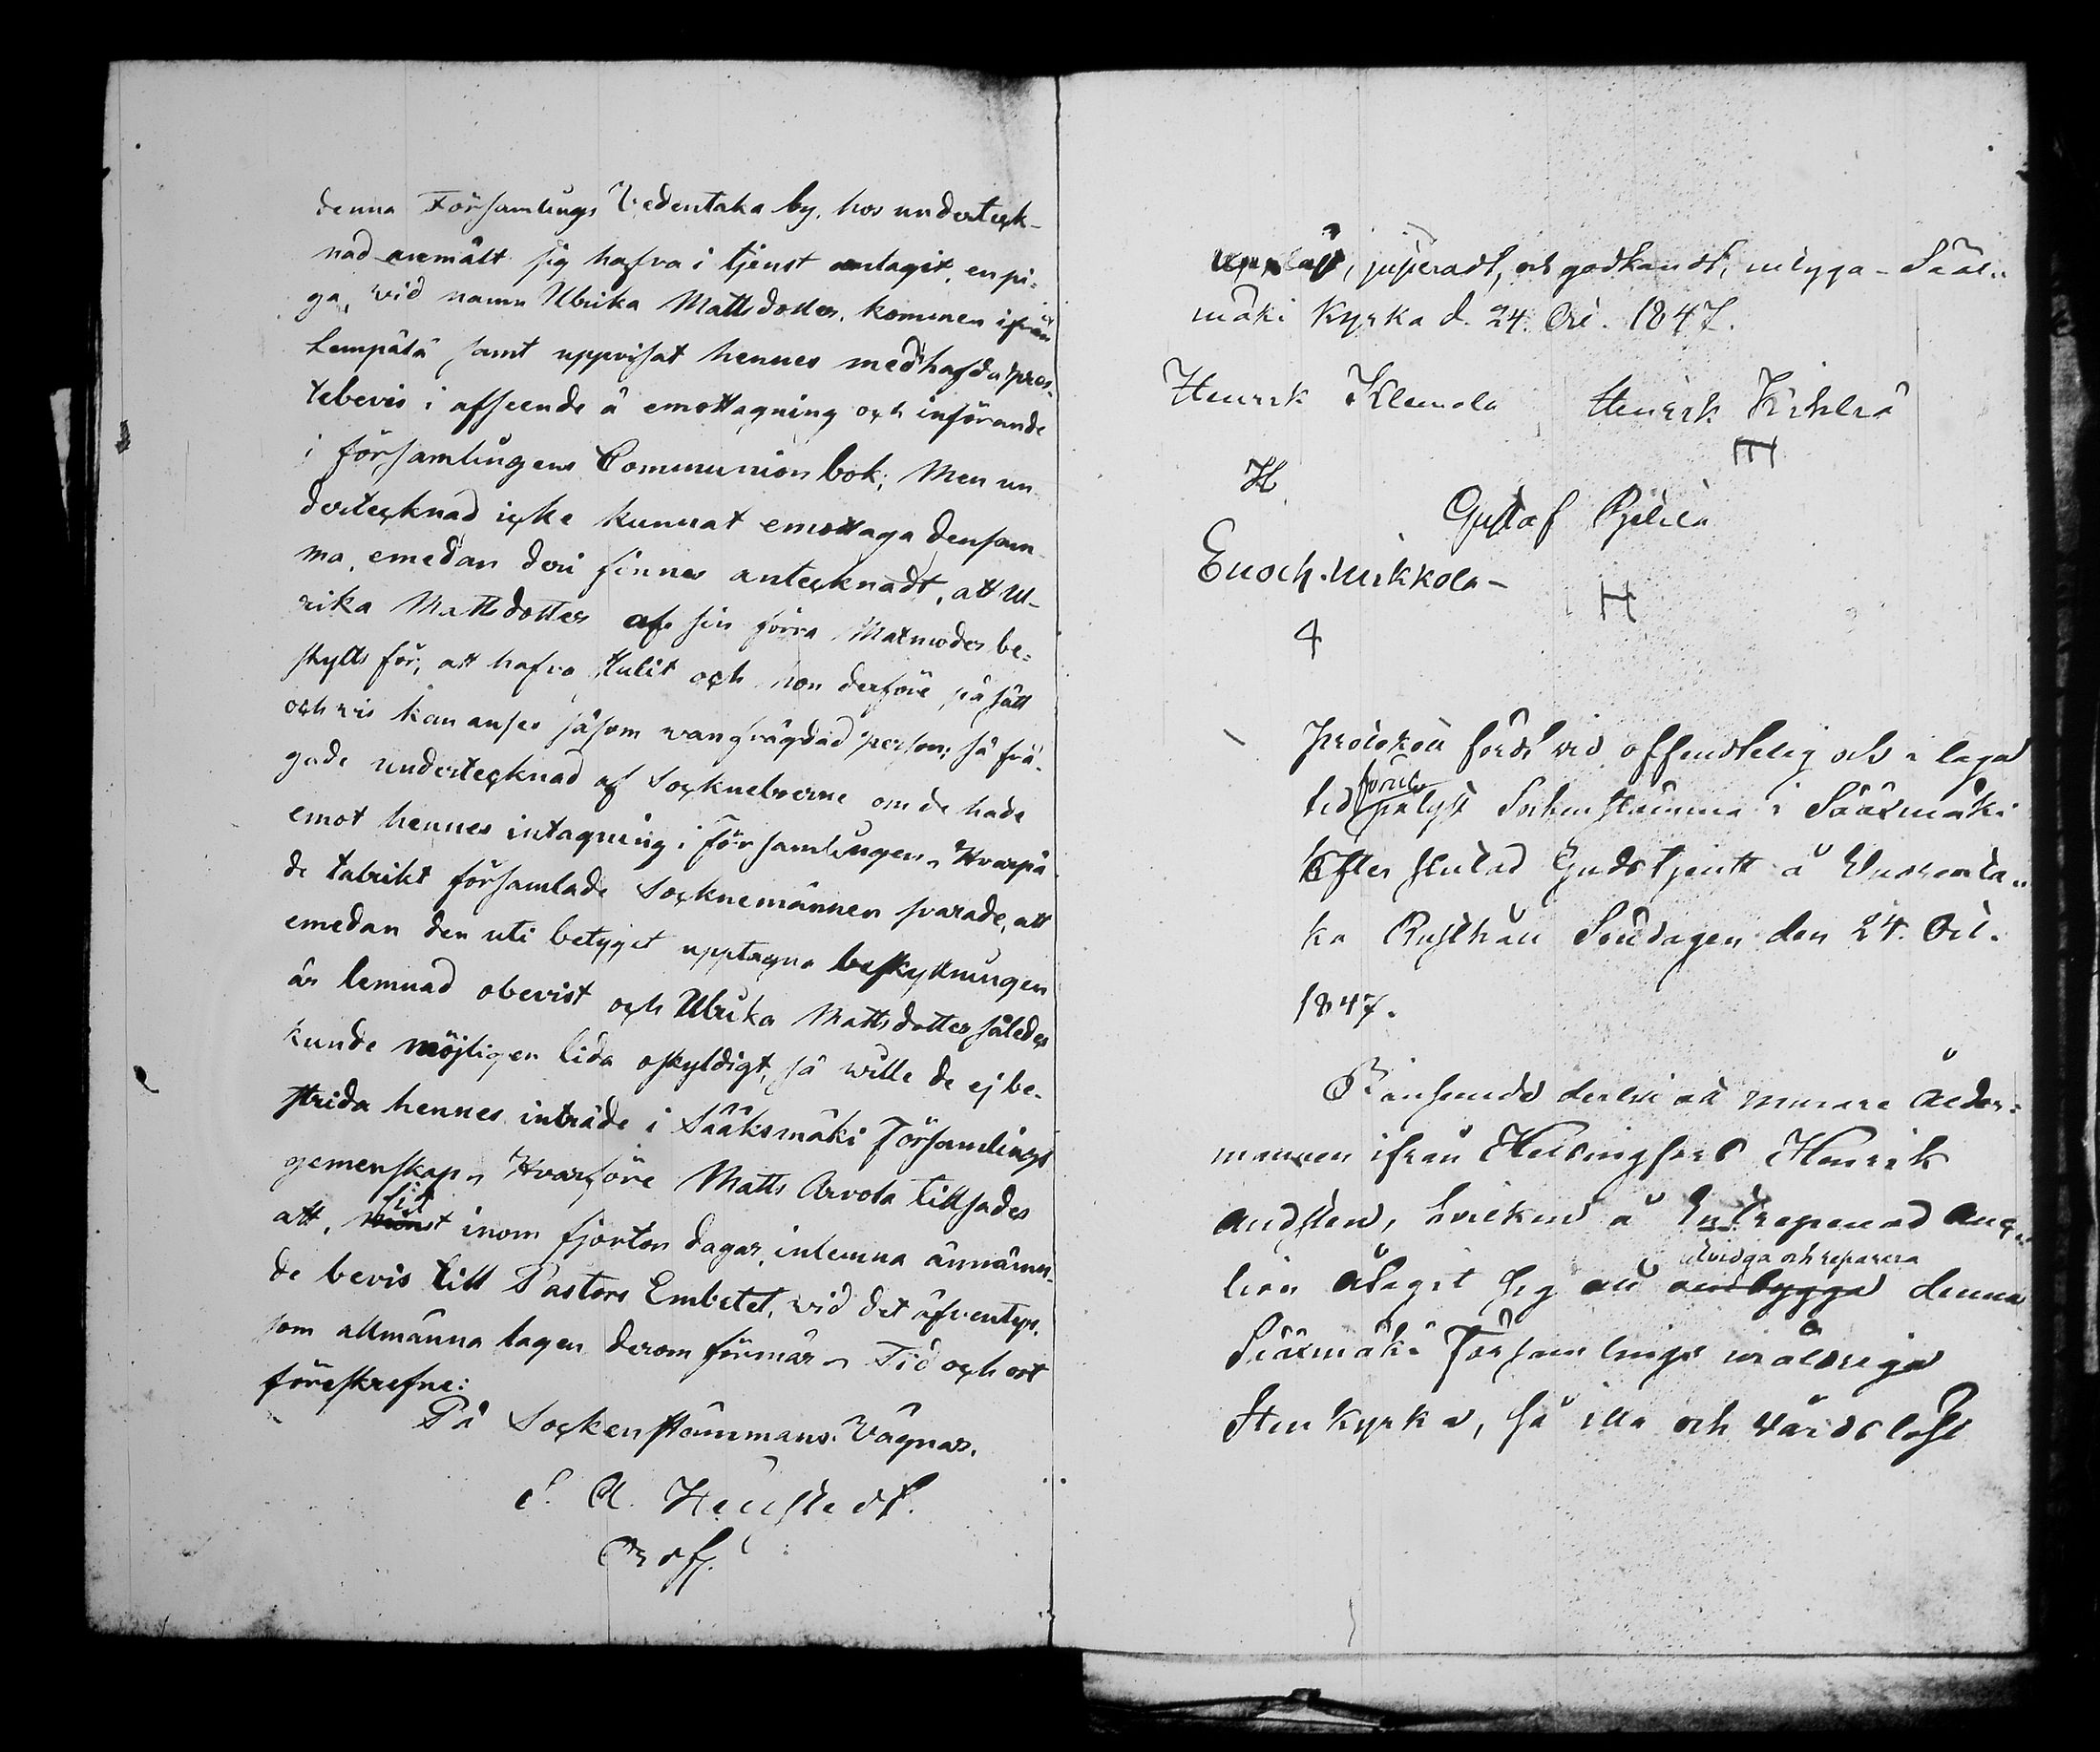 denna Församlings Vedentaka by, hos underteck-
nad anmält sig hafva i tjenst antagit, en pi-
ga, vid namn Ulrika Mattsdotter, kommen ifrån
Lempälä samt uppvisat hennes medhafda pres-
tebevis i afseende å emottagning och införande
i församlingens Communion bok; Men un-
dertecknad icke kunnat emottaga densam-
ma, emedan deri finnes antecknadt, att Ul-
rika Mattsdotter af sin förra Matmoder be-
skylls för, att hafva stulit och hon derföre på sätt
och vis kan anses såsom vanfrägdad person; så frå-
gade undertecknad af Sockneboerne om de hade
emot hennes intagning i församlingen, Hvarpå
de talrikt församlade Socknemännen svarade, att
emedan den uti betyget upptagna beskyllningen
är lemnad obevist och Ulrika Mattsdotter således
kunde möjligen lida oskyldigt, så wille de ej be-
strida hennes inträde i Sääksmäki Församlings
gemenskap, Hvarföre Matts Arvola tillsades
att, sist inom fjorton dagar, inlemna ännämn-
de bevis till Pastors Embetet, vid det äfventyr,
som allmänna lagen derom förmår, Tid och ort
föreskrefne:
På Sockenstämmans Vägnar,
Uppläst, justeradt, och godkändt, intyga - Sääx-
mäki Kyrka d. 24. Oct. 1847.
Henrik Klemola Henrik
H
Gustaf
Enoch Mikkola -
H
4
Protokoll fördt vid offendtelig och i laga
tid förut pålyst Sockenstämma i Sääxmäki
Efter slutad Gudstjenst å
ka Rusthåll Söndagen den 24. Oct.
1847.
att murare Ålder-
mannen ifrån Helsingfors Henrik
hvilken å Entreprenad Auc-
tion åtagit sig att utvidga och reparera ombygga denna
Sääxmäki Församlings uråldriga
Sten Kyrka, så illa och vårdslöst